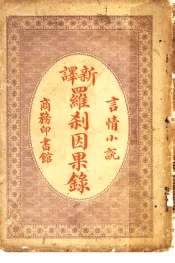 言情小說
新譯
羅刹因果錄
商務印書館